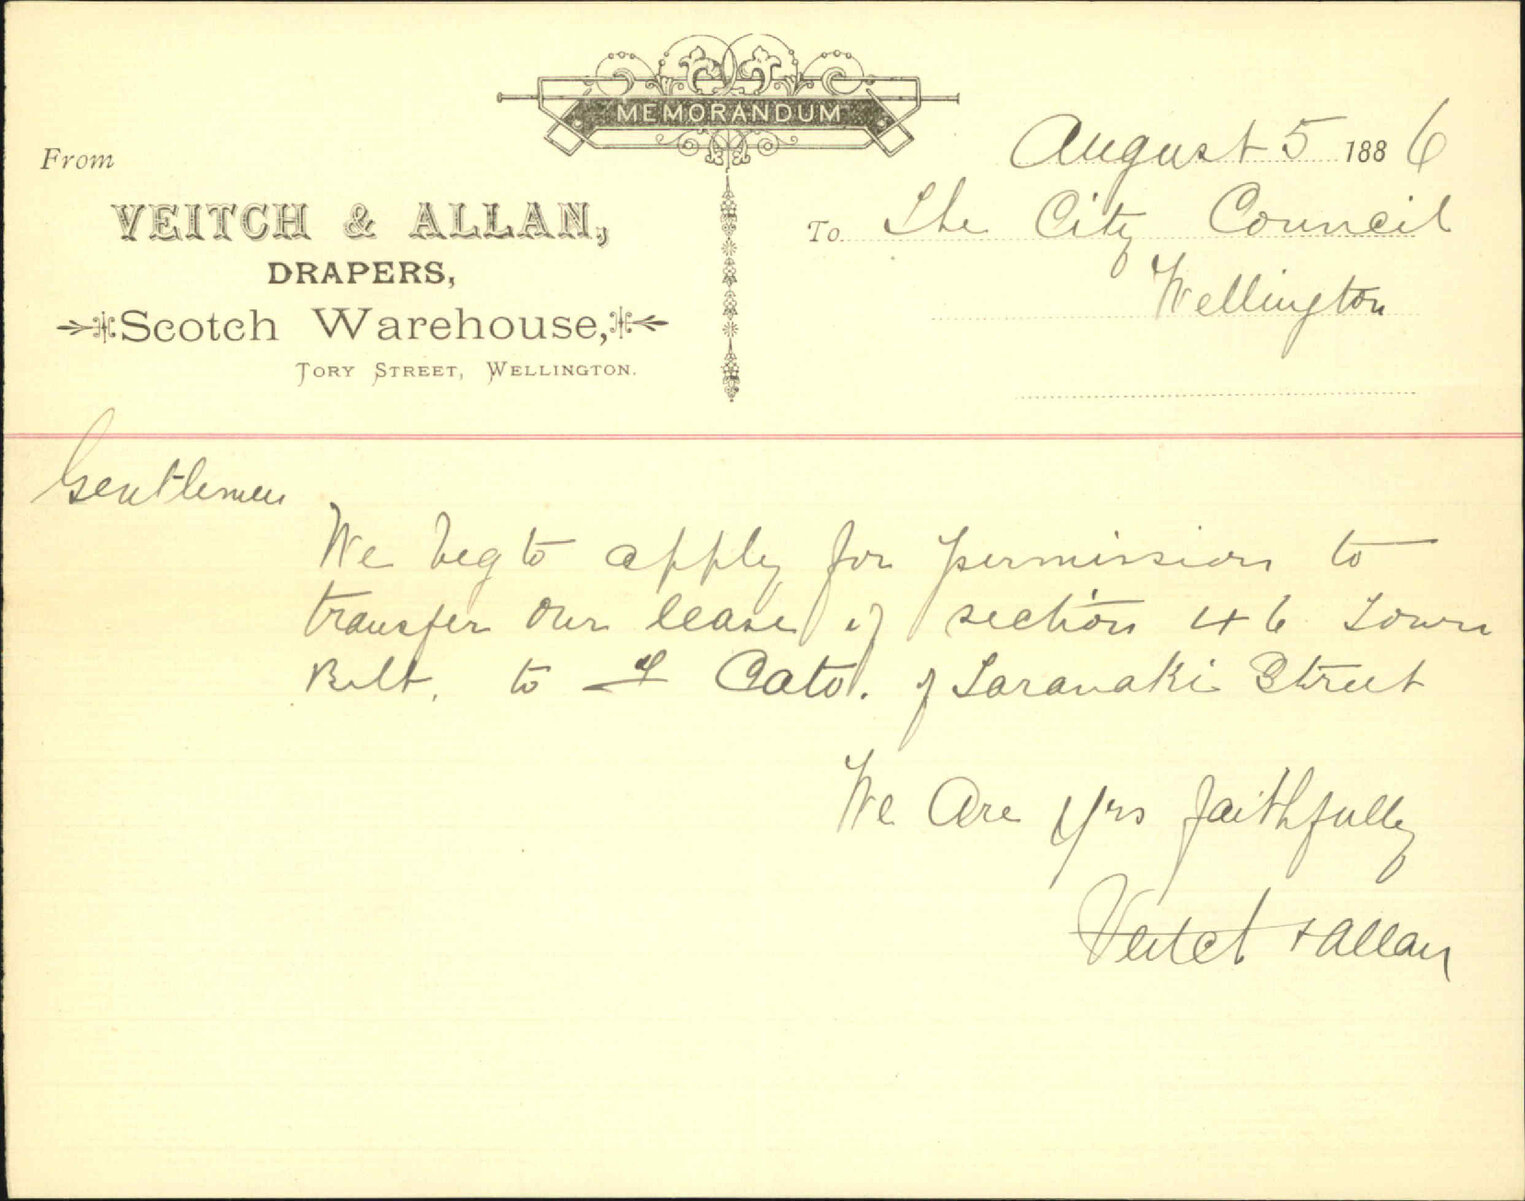 MEMORANDUM
August 5 1886
From
VEITCH & ALLAN,
DRAPERS,
Scotch Warehouse,
TORY STREET, WELLINGTON.
To The City Council
Wellington
Gentlemen
We beg to apply for permission to
transfer our lease of section 46 Town
Belt. to Cato. of Taranaki Street
We Are Yrs faithfully
Veitch & Allan